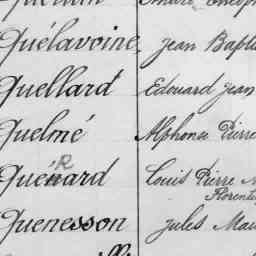 Quélavoine, Jean Bapti
Quellard Edouard Jean
Quelmé Alphonse Pierre
R
Quénard Louis Pierre
Florentin
Quenesson Jules Mau